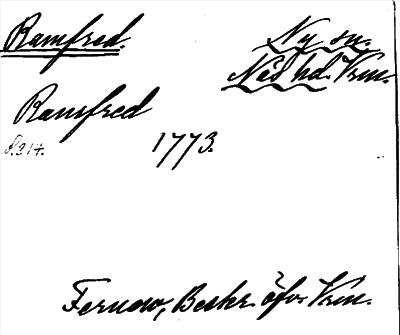 Ramfred. Ny sn.
Näs hd. Vrm.
Ramfred
S. 214. 1773.
Fernow, Beskr. öfv. Vrm.